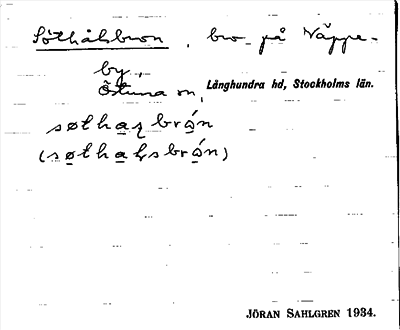 Söthålsbron, bro på Näppe-
by,
Östuna sn, Långhundra hd, Stockholms län.
søthaʂbrån
(søthaḷsbrån)
JÖRAN SAHLGREN 1934.